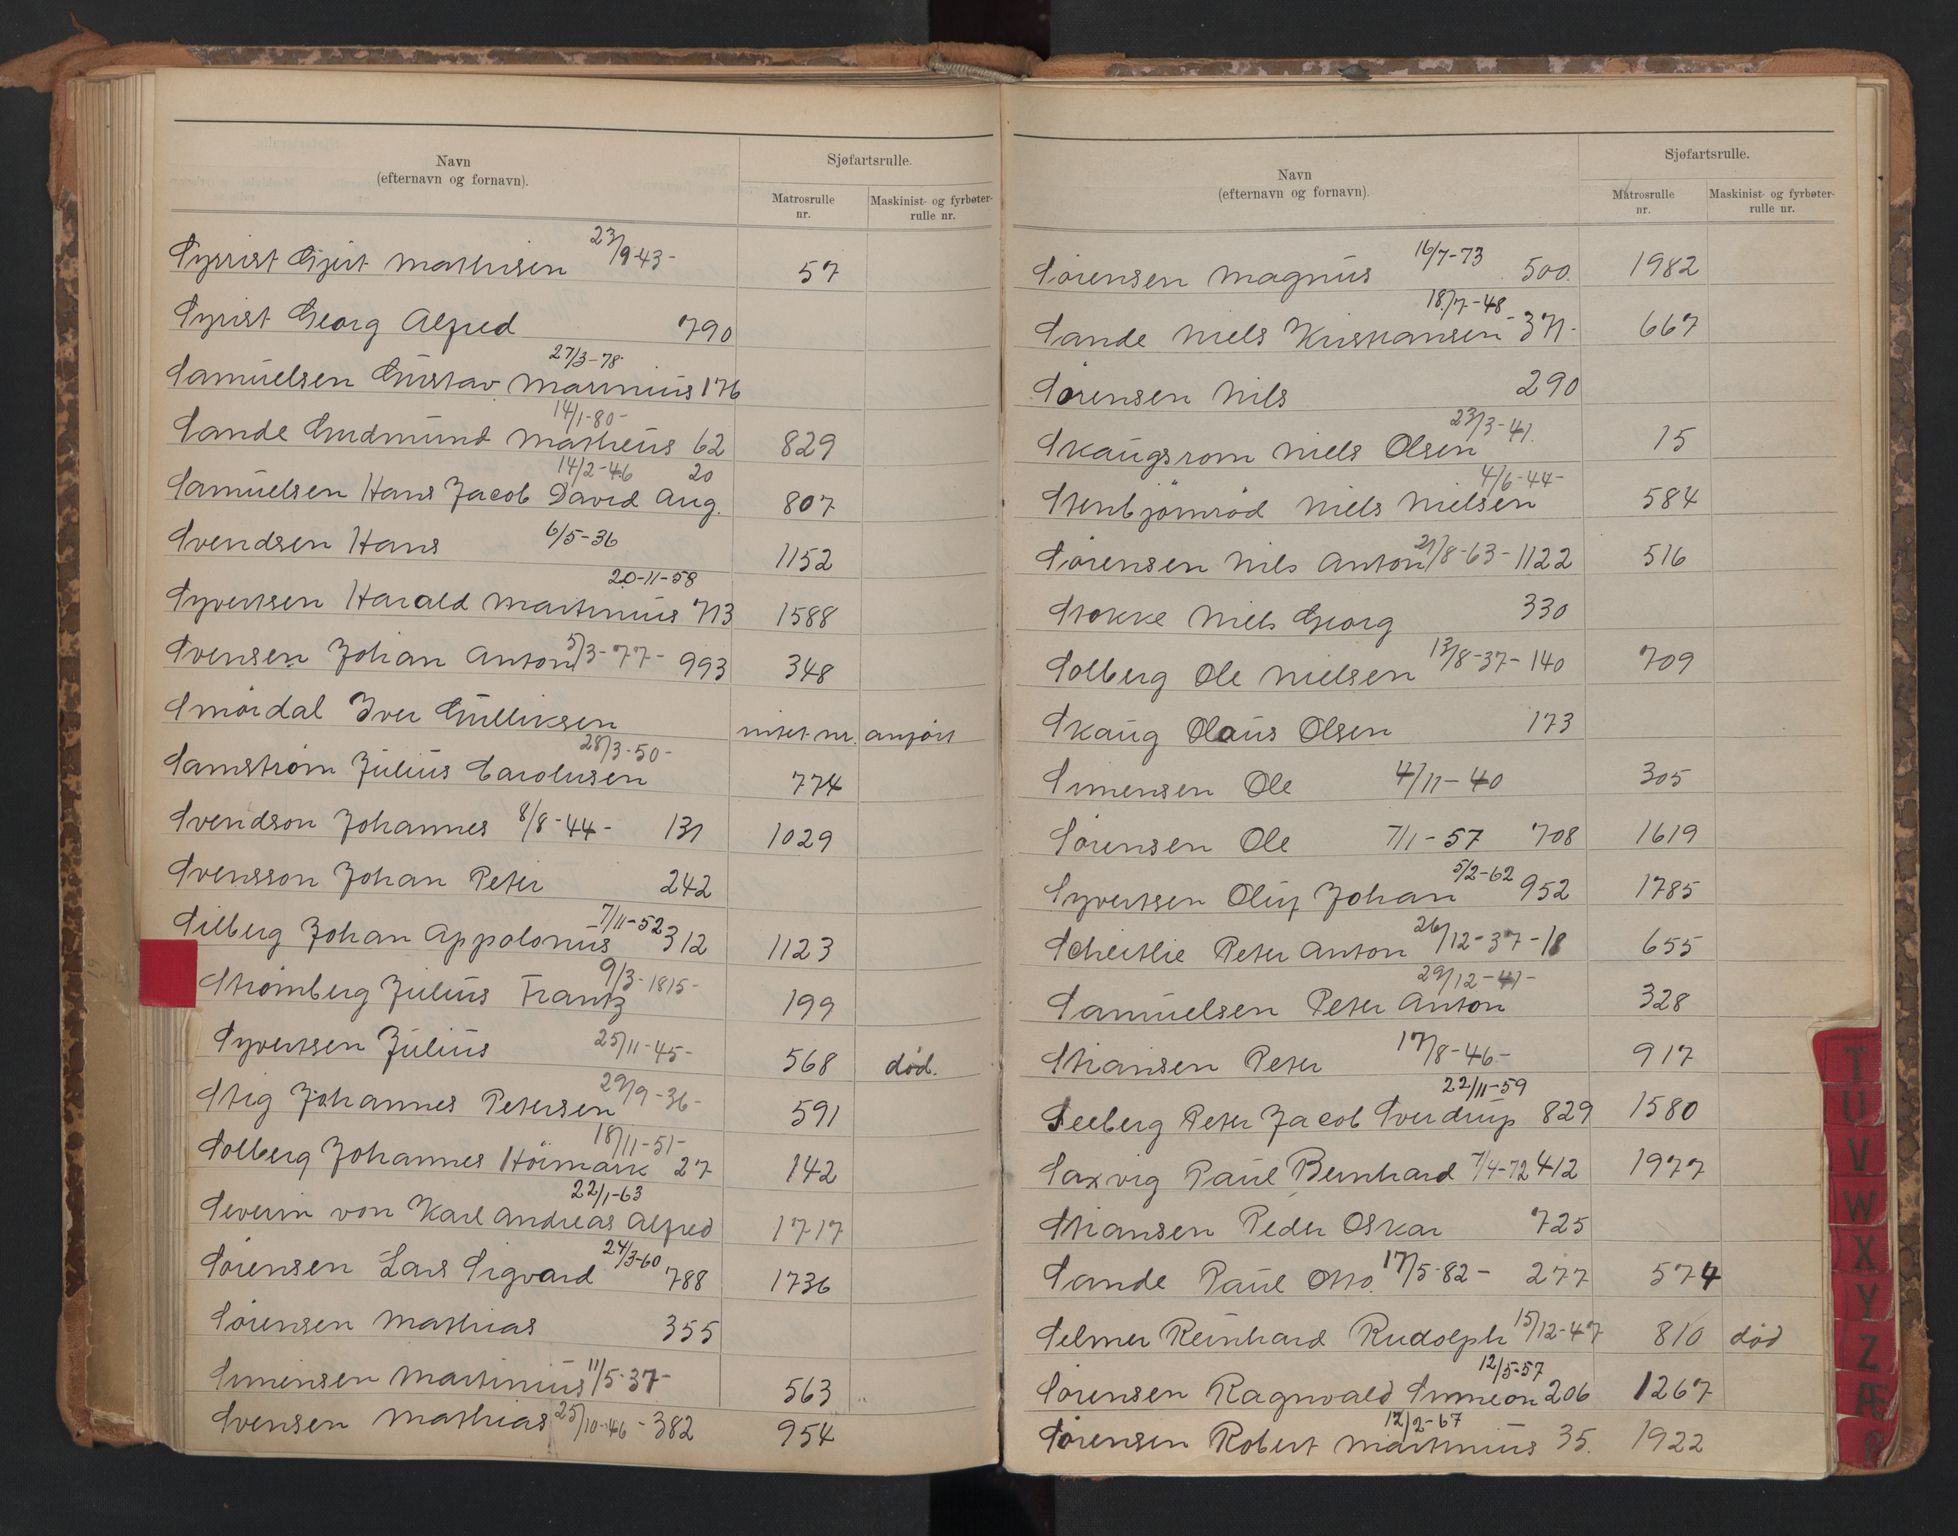 Navn
(efternavn og fornavn).
Sjøfartsrulle.
Matrosrulle nr.
Maskinist- og fyrbøter-rulle nr.
Syrrist Gjert Mathisen 23/9-43- 57
Syrist Georg Alfred 790
Samuelsen Gustav Marinius 27/3-78 176
Sande Gudmund Matheus 14/1-80- 62 829
Samuelsen Hans Jacob David Aug. 14/2-46 20 807
Svendsen Hans 6/5-36 1152
Syvertsen Harald Martinius 20-11-58 713 1588
Svensen Johan Anton 5/3-77- 993 348
Smørdal Iver Gulliksen intet nr. anført
Samstrøm Julius Carolusen 28/3-50- 774
Svendson Johannes 8/8-44- 131 1029
Svensson Johan Peter 242
Silberg Johan Appolonius 7/11-52 312 1123
Strømberg Julius Frantz 9/3-1815- 199
Syvertsen Julius 25/11-45- 568 død.
Stig Johannes Petersen 29/9-36- 591
Solberg Johannes Höimark 18/11-51- 27 142
Severin von Karl Andreas Alfred 22/1-63 1717
Sørensen Lars Sigvard 24/3-60 788 1736
Sørensen Mathias 355
Simensen Martinius 11/5-37- 563
Svensen Mathias 25/10-46- 382 954
Navn
(efternavn og fornavn).
Sjøfartsrulle.
Matrosrulle nr.
Maskinist- og fyrbøter-rulle nr.
Sørensen Magnus 16/7-73 500. 1982
Sande Niels Kristiansen 18/7-48- 371- 667
Sørensen Nils 290
Skaugsrom Niels Olsen 23/3-41. 15
Stenbjörnröd Niels Nielsen 4/6-44- 584
Sørensen Nils Anton 21/8-63- 1122 516
Stokke Niels Georg 330
Solberg Ole Nielsen 13/8-37- 140 709
Skaug Olaus Olsen 173
Simensen Ole 4/11-40 305
Sørensen Ole 7/1-57 708 1619
Syvertsen Oluf Johan 5/2-62 952 1785
Scheitlie Peter Anton 26/12-37-18 655
Samuelsen Peter Anton 29/12-41- 328
Stiansen Peter 17/8-46- 917
Seeberg Peter Jacob Sverdrup 22/11-59 829 1580
Saxvig Paul Bernhard 7/4-72 412 1977
Stiansen Peder Oskar 725
Sande Paul Otto 17/5-82- 277 574
Selmer Reinhard Rudolph 15/12-47 810 død
Sørensen Ragnvald Simeon 12/5-57 206 1267
Sørensen Robert Martinius 12/2-67 35. 1922
T
U
V
W
X
Y
Z
Æ